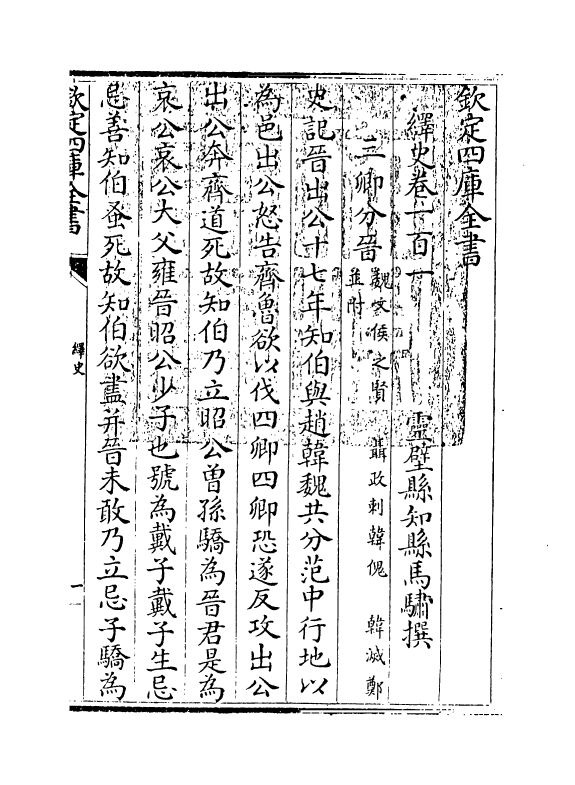 欽定四庫全書
繹史卷一百一 靈壁縣知縣馬驌撰
三卿分晉 魏文侯之賢 聶政刺韓傀 韓滅鄭
並附
史記晉出公十七年知伯與趙韓魏共分范中行地以
為邑出公怒告齊魯欲以伐四卿四卿恐遂反攻出公
出公奔齊道死故知伯乃立昭公曽孫驕為晉君是為
哀公哀公大父雍晉昭公少子也號為戴子戴子生忌
忌善知伯蚤死故知伯欲盡并晉未敢乃立忌子驕為
欽定四庫全書
繹史
一